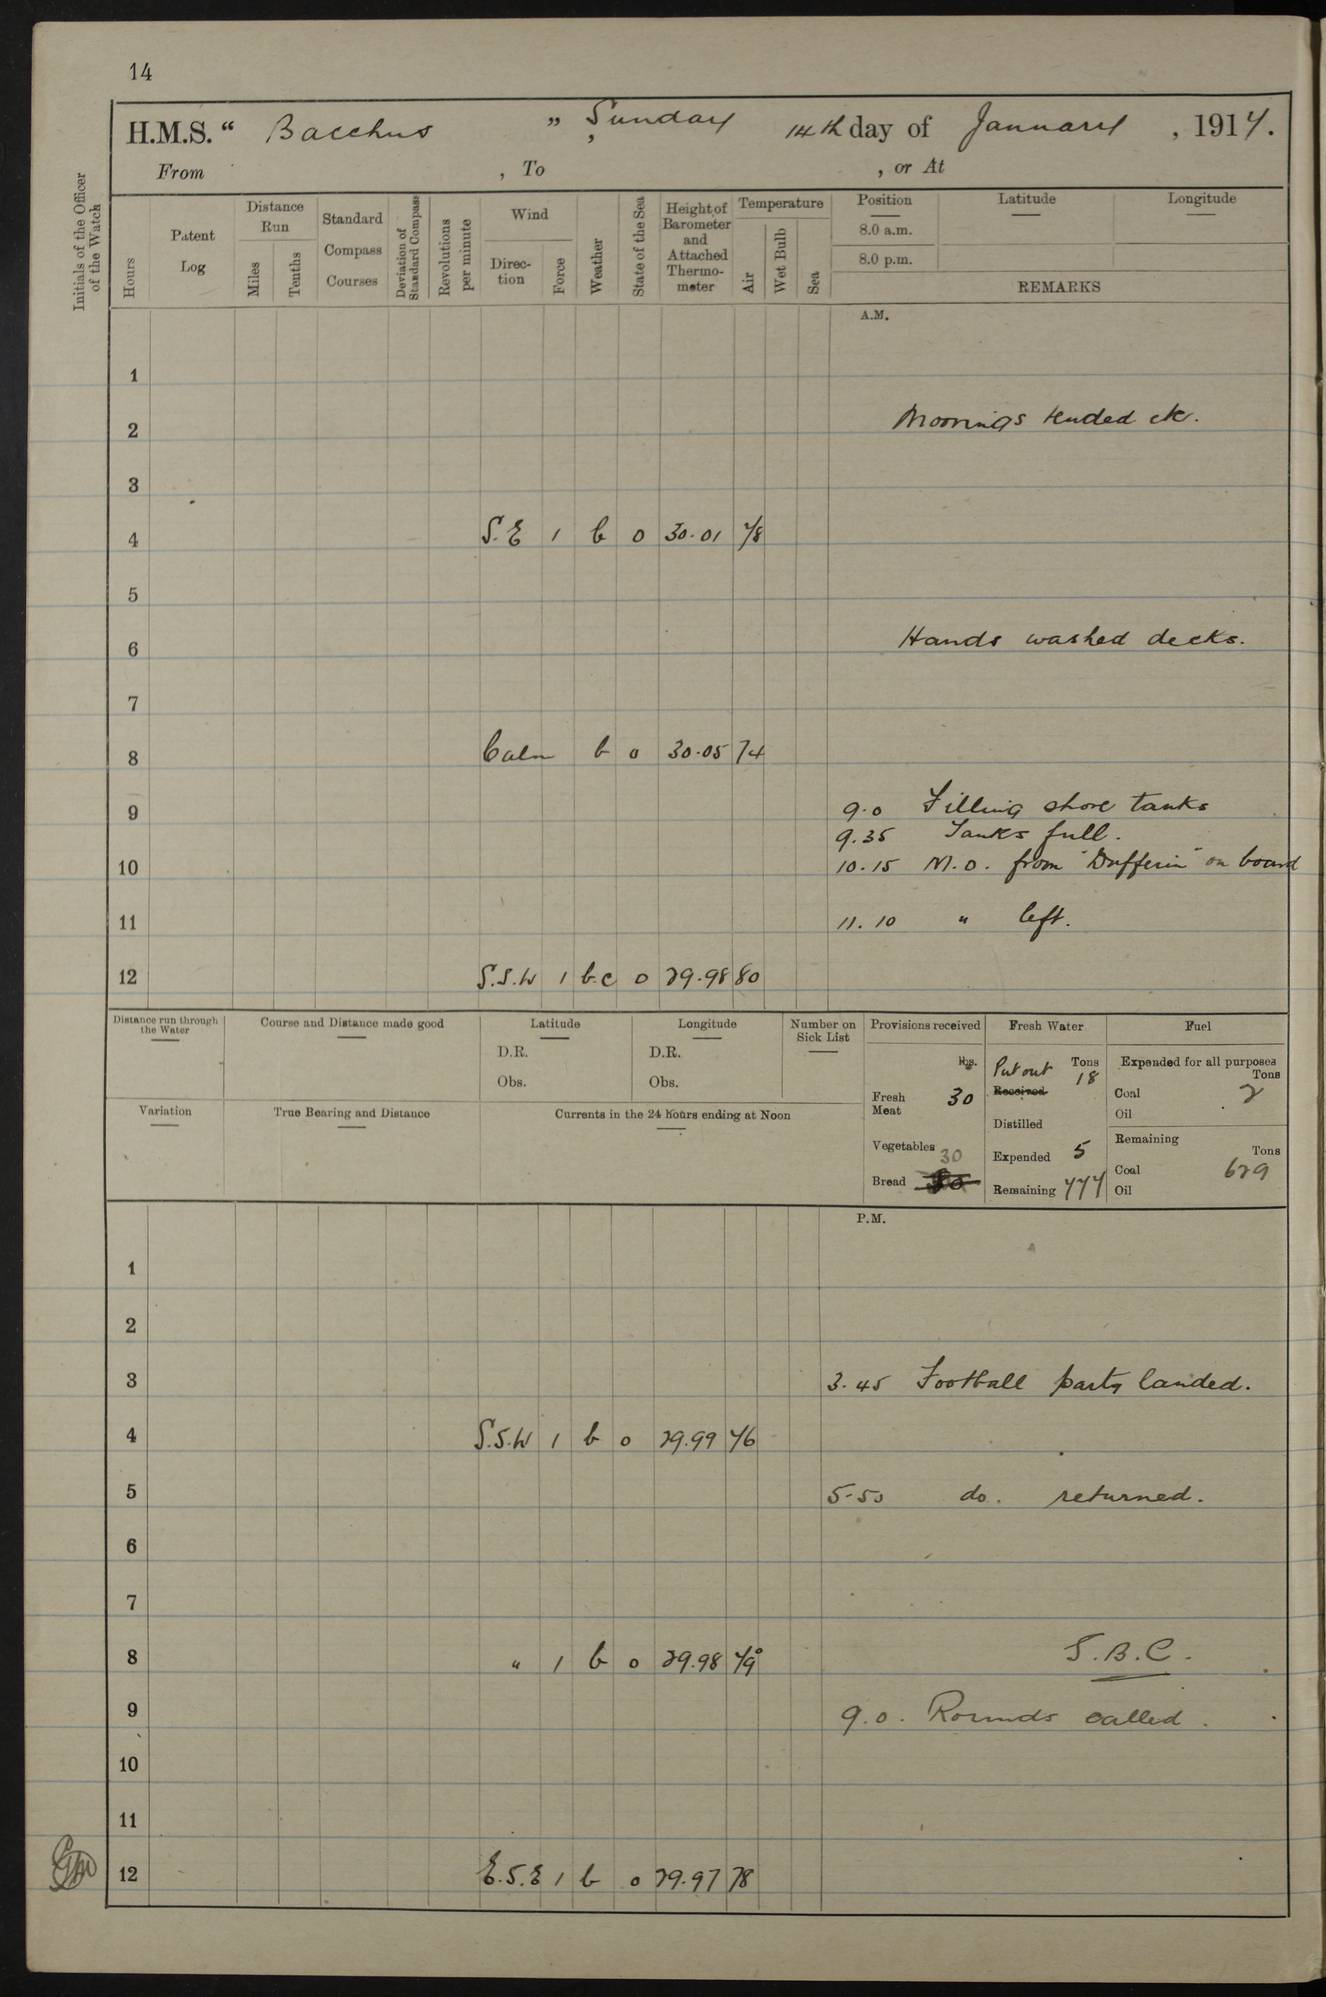 14
H.M.S. “ Bacchus ”, Sunday 14th day of January, 1917.
From , To , or At
Initials of the Officer of the Watch
Hours
Patent Log
Distance Run
Miles
Tenths
Standard Compass Courses
Deviation of Standard Compass
Revolutions per minute
Wind
Direction
Force
Weather
State of the Sea
Height of Barometer and Attached Thermometer
Temperature
Air
Wet Bulb
Sea
Position Latitude Longitude
8.0 a.m.
8.0 p.m.
REMARKS
A.M.
1
2 Moorings tended etc.
3
4 S.E 1 b 0 30.01 78
5
6 Hands washed decks.
7
8 Calm b 0 30.05 74
9 9.0 Filling shore tanks
9.35 Tanks full.
10 10.15 M.O. from "Dufferin" on board
11 11.10 " left.
12 S.S.W 1 b.c 0 29.98 80
Distance run through the Water
Course and Distance made good
Latitude
D.R.
Obs.
Longitude
D.R.
Obs.
Number on Sick List
Variation
True Bearing and Distance
Currents in the 24 hours ending at Noon
Provisions received
lbs.
Fresh Meat 30
Vegetables 30
Bread 30
Fresh Water
Put out Tons 18
Received
Distilled
Expended 5
Remaining 777
Fuel
Expended for all purposes
Tons
Coal 2
Oil
Remaining
Tons
Coal 629
Oil
P.M.
1
2
3 3.45 Football party landed.
4 S.S.W 1 b 0 29.99 76
5 5.50 do. returned.
6
7
8 " 1 b 0 29.98 79° S.B.C.
9 9.0. Rounds called.
10
11
12 E.S.E 1 b 0 29.97 78